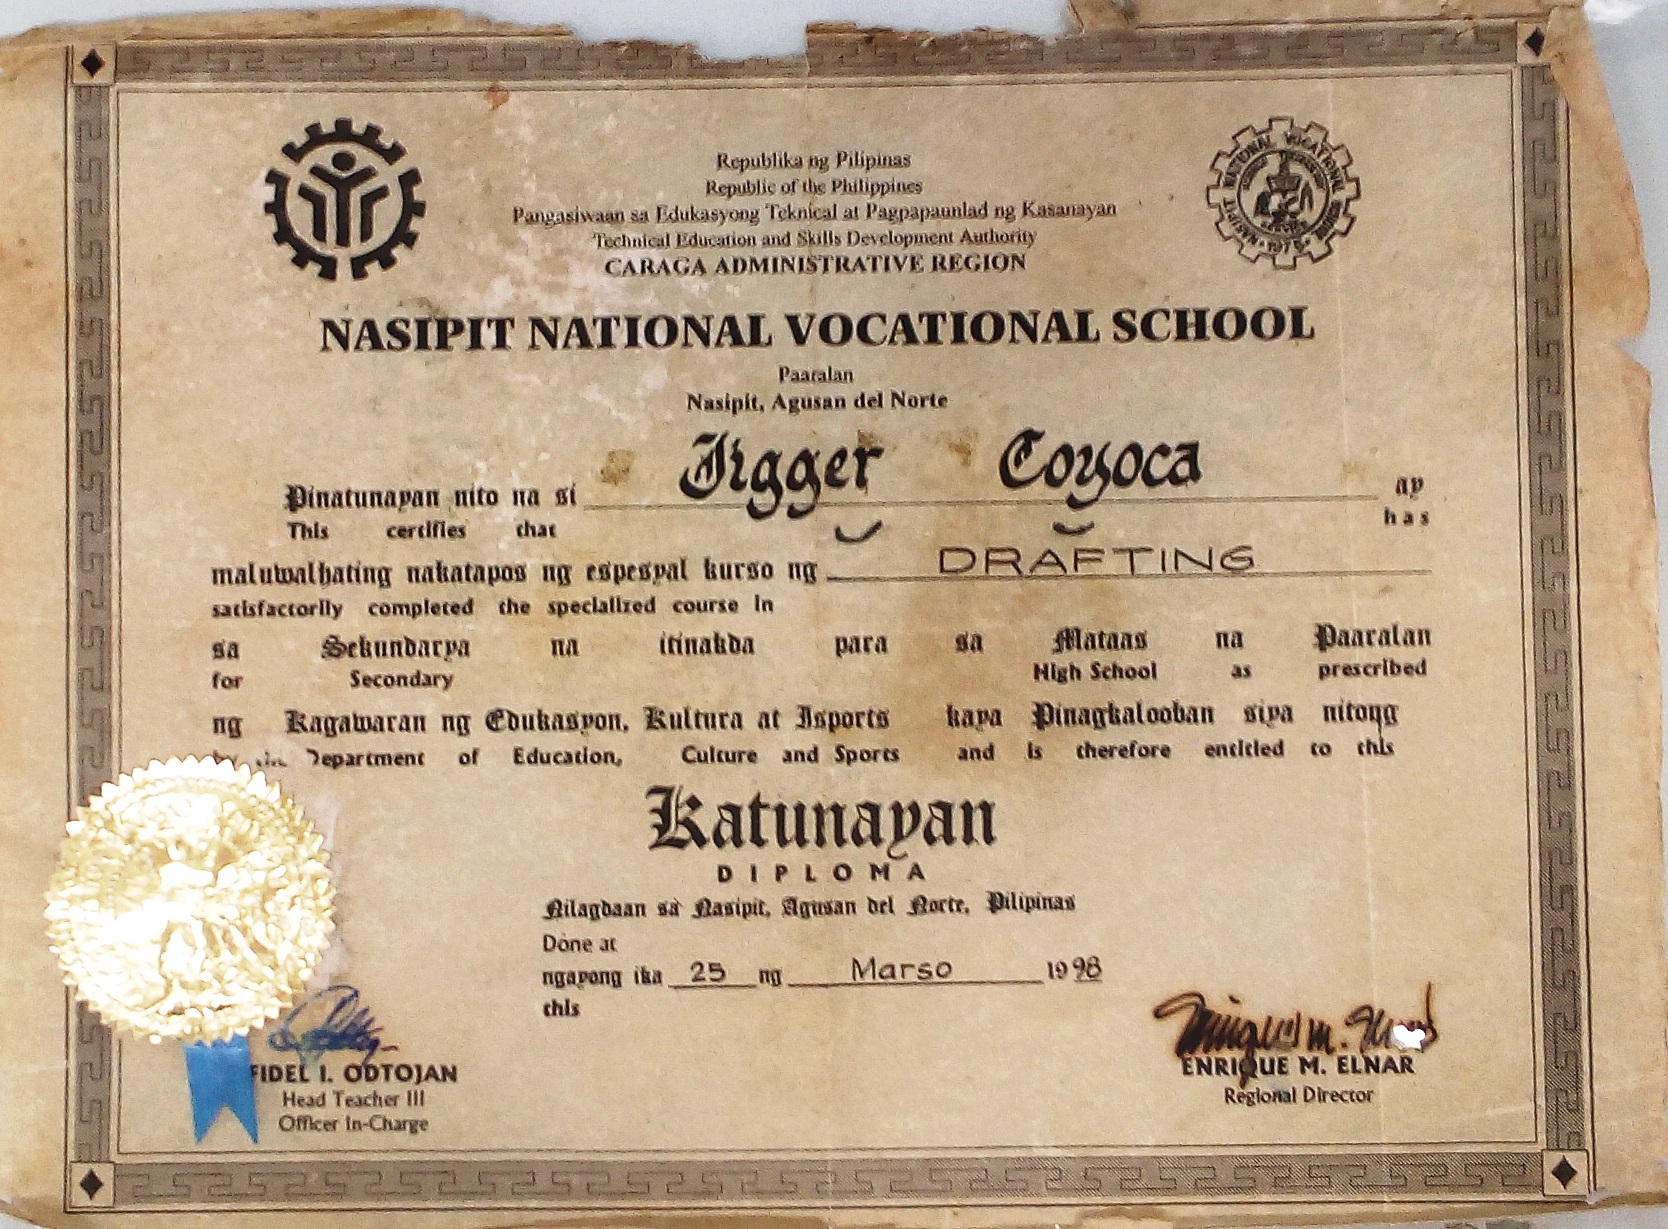 Republika ng Pilipinas
Republic of the Philippines
Pangasiwaan sa Edukasyong Teknical at Pagpapaunlad ng Kasanayan
Technical Education and Skills Development Authority
CARAGA ADMINISTRATIVE REGION
NASIPIT NATIONAL VOCATIONAL SCHOOL
Paaralan
Nasipit, Agusan del Norte
Pinatunayan nito na si Jigger Coyoca ay
This certifies that has
maluwalhating nakatapos ng espesyal kurso ng DRAFTING
satisfactorily completed the specialized course in
sa Sekundarya na itinakda para sa Mataas na Paaralan
for Secondary High School as prescribed
ng Kagawaran ng Edukasyon, Kultura at Isports kaya Pinagkalooban siya nitong
Department of Education, Culture and Sports and is therefore entitled to this
Katunayan
DIPLOMA
Nilagdaan sa Nasipit, Agusan del Norte, Pilipinas
Done at
ngayong ika 25 ng Marso 1998
this
FIDEL I. ODTOJAN
Head Teacher III
Officer In-Charge
ENRIQUE M. ELNAR
Regional Director
NASIPIT NATIONAL VOCATIONAL 1975